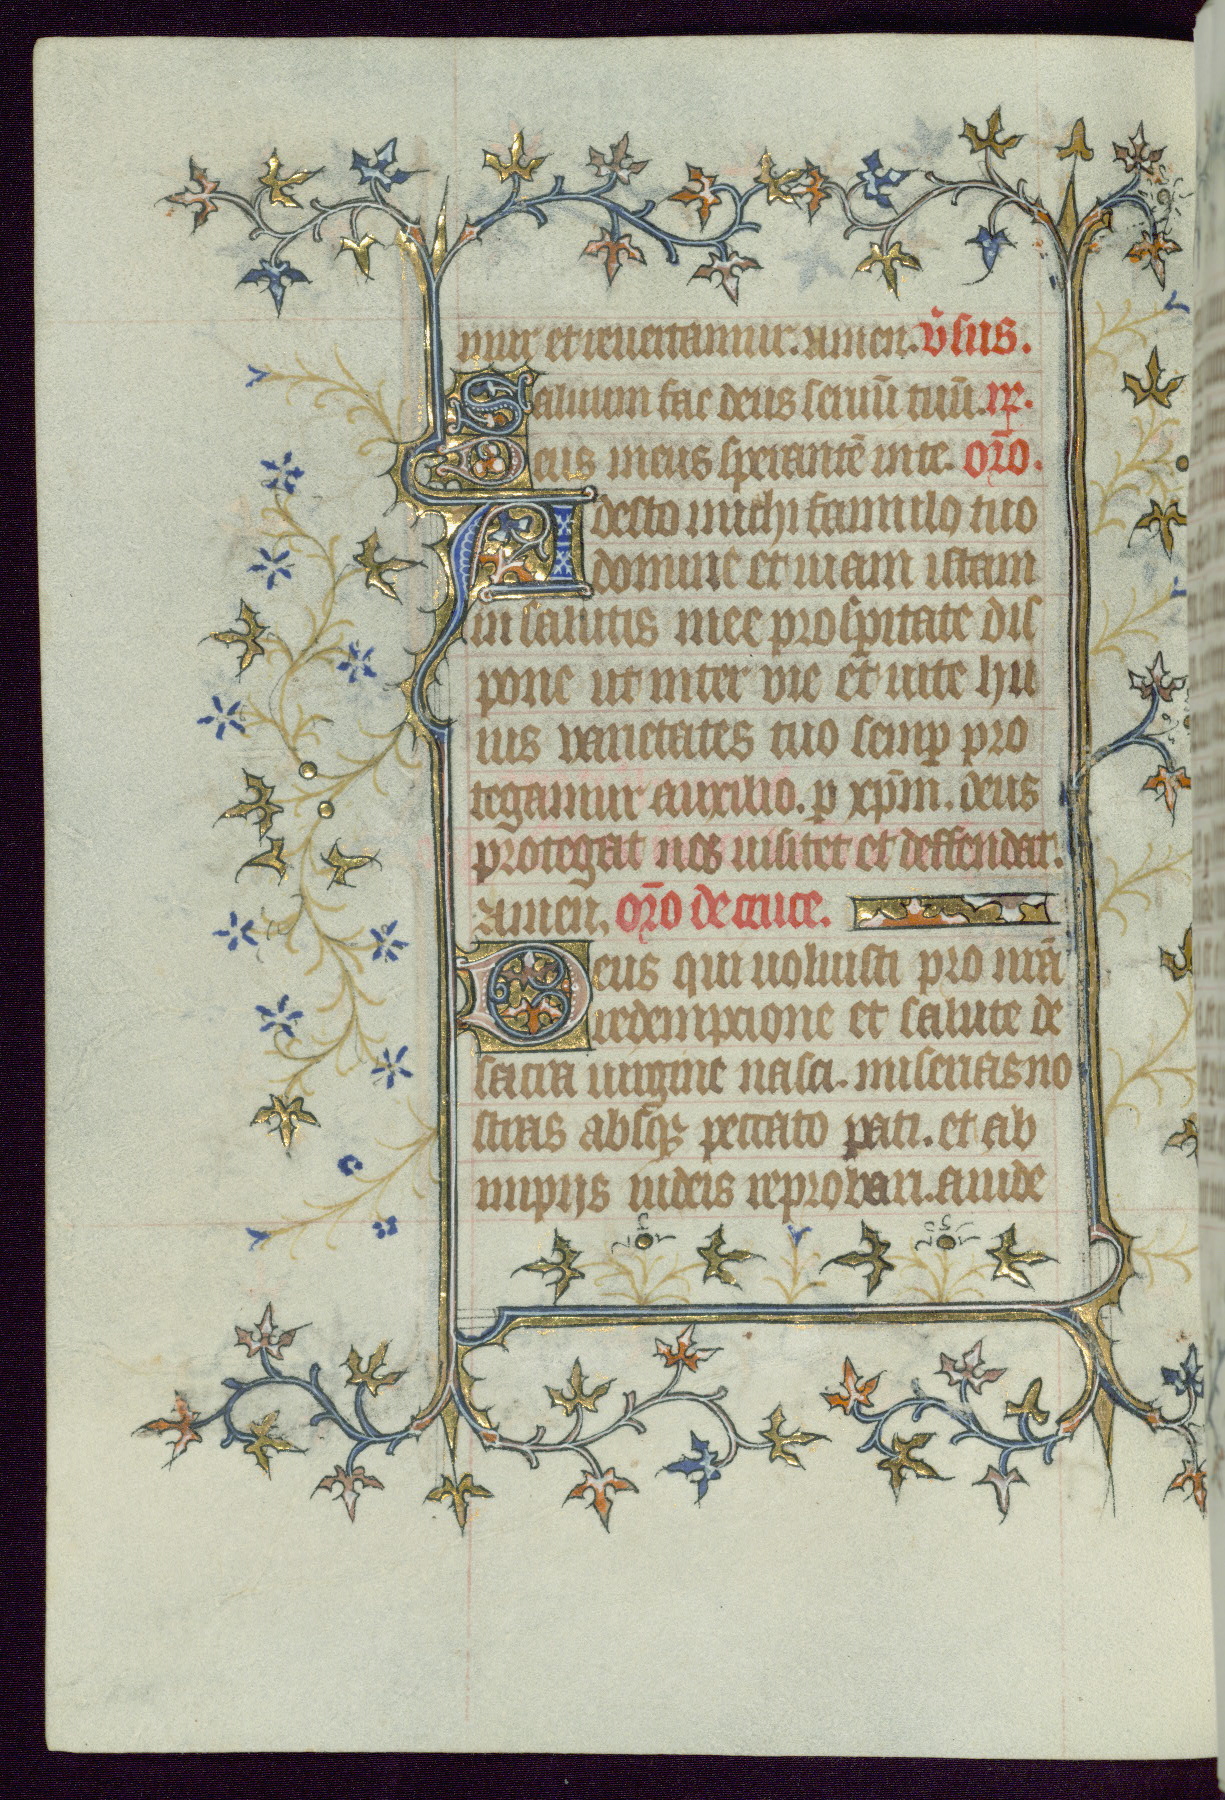 mur et reuertamur. amen. v̄sus.
Saluum fac deus seruū tuū. rp̄.
Deus meus sperantē in te. or̄o.
Adesto michi famulo tuo
domine et uiam istam
in salutis mee prosꝑitate dis
pone ut inter vie et uite hu
ius varietates tuo semꝑ pro
tegamur auxilio. p xp̄m. deus
protegat nos uisitet et deffendat.
Amen. or̄o de cruce.
Deus qui uoluisti pro nr̄ā
redemptione et salute de
sacra uirgine nasci. miserias no
stras absqꝫ peccato pati. et ab
impijs iudeis reprobari. a iude